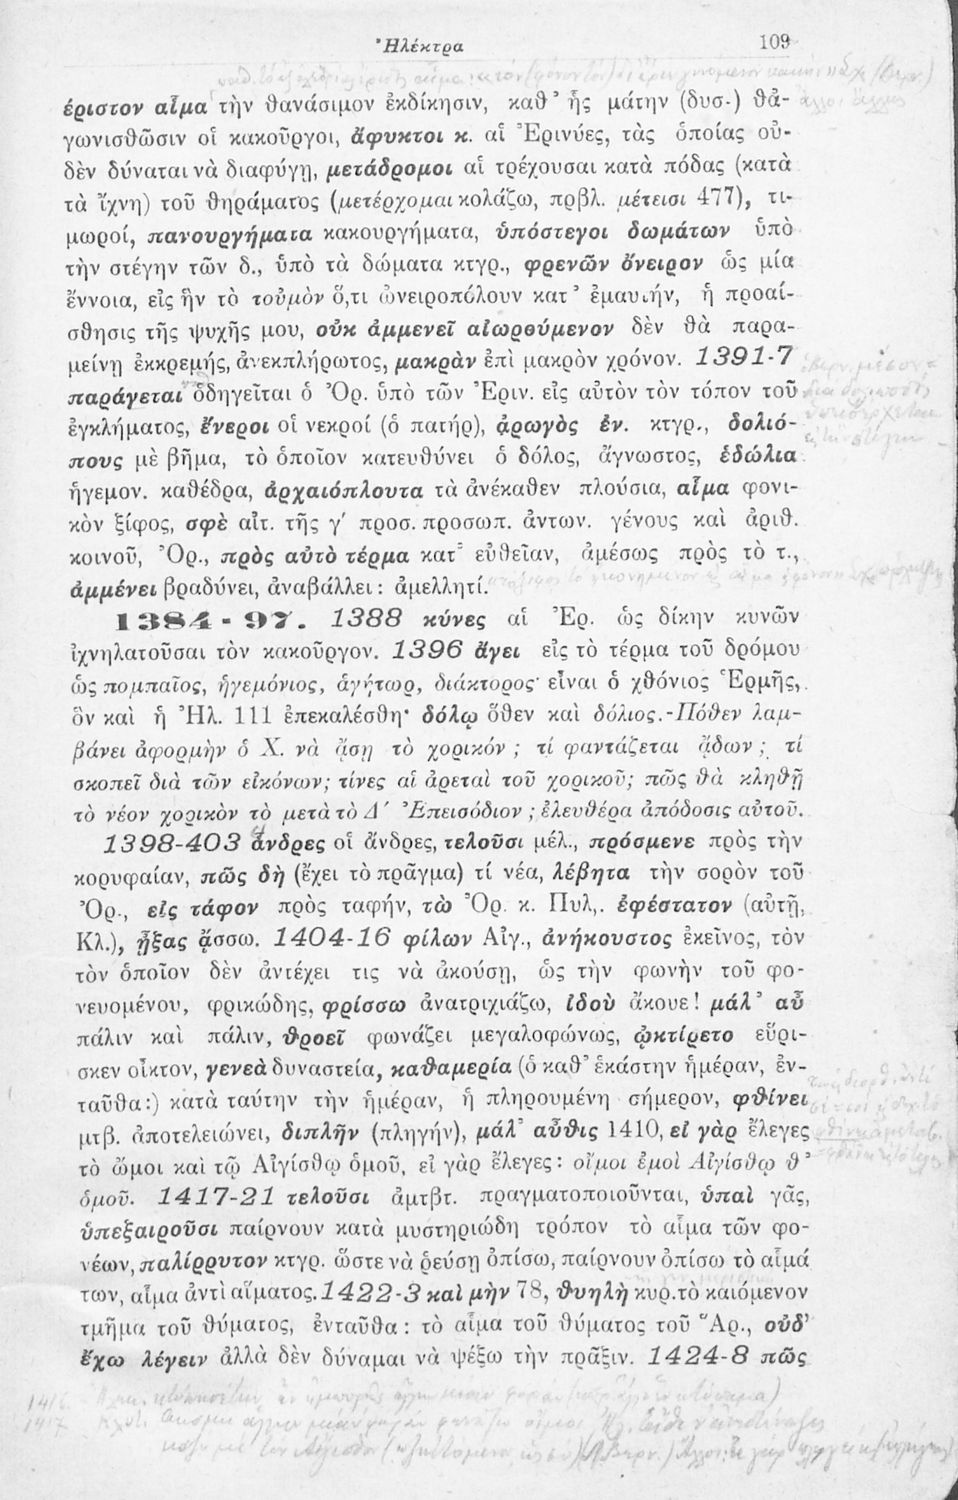 Ἠλέκτρα 109
έριστον αἷμα τὴν θανάσιμον ἐκδίκησιν, καθ' ἧς μάτην (δυσ-) θὰ
γωνισθῶσιν οἱ κακοῦργοι, ἄφυκτοι κ. αἱ Ἐρινύες, τὰς ὁποίας οὐ-
δὲν δύναται νὰ διαφύγῃ, μετάδρομοι αἱ τρέχουσαι κατὰ πόδας (κατὰ
τὰ ἴχνη) τοῦ θηράματος (μετέρχομαι κολάζω, πρβλ. μέτεισι 477), τι-
μωροί, πανουργήματα κακουργήματα, ὑπόστεγοι δωμάτων ὑπὸ
τὴν στέγην τῶν δ., ὑπὸ τὰ δώματα κτγρ., φρενῶν ὄνειρον ὡς μία
ἔννοια, εἰς ἣν τὸ τοὐμὸν ὅ,τι ὠνειροπόλουν κατ' ἐμαυτήν, ἡ προαί-
σθησις τῆς ψυχῆς μου, οὐκ ἀμμενεῖ αἰωρούμενον δὲν θὰ παρα-
μείνῃ ἐκκρεμής, ἀνεκπλήρωτος, μακρὰν ἐπὶ μακρὸν χρόνον. 1391-7
παράγεται ὁδηγεῖται ὁ Ὀρ. ὑπὸ τῶν Ἐριν. εἰς αὐτὸν τὸν τόπον τοῦ
ἐγκλήματος, ἔνεροι οἱ νεκροί (ὁ πατήρ), ἀρωγὸς ἐν. κτγρ., δολιό-
πους μὲ βῆμα, τὸ ὁποῖον κατευθύνει ὁ δόλος, ἄγνωστος, ἑδώλια
ἡγεμον. καθέδρα, ἀρχαιόπλουτα τὰ ἀνέκαθεν πλούσια, αἷμα φονι-
κὸν ξίφος, σφὲ αἰτ. τῆς γ' προσ. προσωπ. ἀντων. γένους καὶ ἀριθ.
κοινοῦ, Ὀρ., πρὸς αὐτὸ τέρμα κατ' εὐθεῖαν, ἀμέσως πρὸς τὸ τ.,
ἀμμένει βραδύνει, ἀναβάλλει: ἀμελλητί.
1384-97. 1388 κύνες αἱ Ἐρ. ὡς δίκην κυνῶν
ἰχνηλατοῦσαι τὸν κακοῦργον. 1396 ἄγει εἰς τὸ τέρμα τοῦ δρόμου
ὡς πομπαῖος, ἡγεμόνιος, ἁγήτωρ, διάκτορος· εἶναι ὁ χθόνιος Ἑρμῆς,
ὃν καὶ ἡ Ἠλ. 111 ἐπεκαλέσθη· δόλῳ ὅθεν καὶ δόλιος.-Πόθεν λαμ-
βάνει ἀφορμὴν ὁ Χ. νὰ ᾄσῃ τὸ χορικόν ; τί φαντάζεται ᾄδων ; τί
σκοπεῖ διὰ τῶν εἰκόνων; τίνες αἱ ἀρεταὶ τοῦ χορικοῦ; πῶς θὰ κληθῇ
τὸ νέον χορικὸν τὸ μετὰ τὸ Δ' Ἐπεισόδιον ; ἐλευθέρα ἀπόδοσις αὐτοῦ.
1398-403 ἄνδρες οἱ ἄνδρες, τελοῦσι μέλ., πρόσμενε πρὸς τὴν
κορυφαίαν, πῶς δὴ (ἔχει τὸ πρᾶγμα) τί νέα, λέβητα τὴν σορὸν τοῦ
Ὀρ., εἰς τάφον πρὸς ταφήν, τὼ Ὀρ. κ. Πυλ,. ἐφέστατον (αὐτῇ,
Κλ.), ᾖξας ᾄσσω. 1404-16 φίλων Αἰγ., ἀνήκουστος ἐκεῖνος, τὸν
τὸν ὁποῖον δὲν ἀντέχει τις νὰ ἀκούσῃ, ὡς τὴν φωνὴν τοῦ φο-
νευομένου, φρικώδης, φρίσσω ἀνατριχιάζω, ἰδοὺ ἄκουε! μάλ' αὖ
πάλιν καὶ πάλιν, θροεῖ φωνάζει μεγαλοφώνως, ᾠκτίρετο εὕρι-
σκεν οἶκτον, γενεὰ δυναστεία, καθαμερία (ὁ καθ' ἑκάστην ἡμέραν, ἐν-
ταῦθα:) κατὰ ταύτην τὴν ἡμέραν, ἡ πληρουμένη σήμερον, φθίνει
μτβ. ἀποτελειώνει, διπλῆν (πληγήν), μάλ' αὖθις 1410, εἰ γὰρ ἔλεγες
τὸ ὤμοι καὶ τῷ Αἰγίσθῳ ὁμοῦ, εἰ γὰρ ἔλεγες: οἴμοι ἐμοὶ Αἰγίσθῳ θ'
ὁμοῦ. 1417-21 τελοῦσι ἀμτβτ. πραγματοποιοῦνται, ὑπαὶ γᾶς,
ὑπεξαιροῦσι παίρνουν κατὰ μυστηριώδη τρόπον τὸ αἷμα τῶν φο-
νέων, παλίρρυτον κτγρ. ὥστε νὰ ῥεύσῃ ὀπίσω, παίρνουν ὀπίσω τὸ αἷμά
των, αἷμα ἀντὶ αἵματος. 1422-3 καὶ μὴν 78, θυηλὴ κυρ. τὸ καιόμενον
τμῆμα τοῦ θύματος, ἐνταῦθα: τὸ αἷμα τοῦ θύματος τοῦ Ἄρ., οὐδ'
ἔχω λέγειν ἀλλὰ δὲν δύναμαι νὰ ψέξω τὴν πρᾶξιν. 1424-8 πῶς
1416
1417